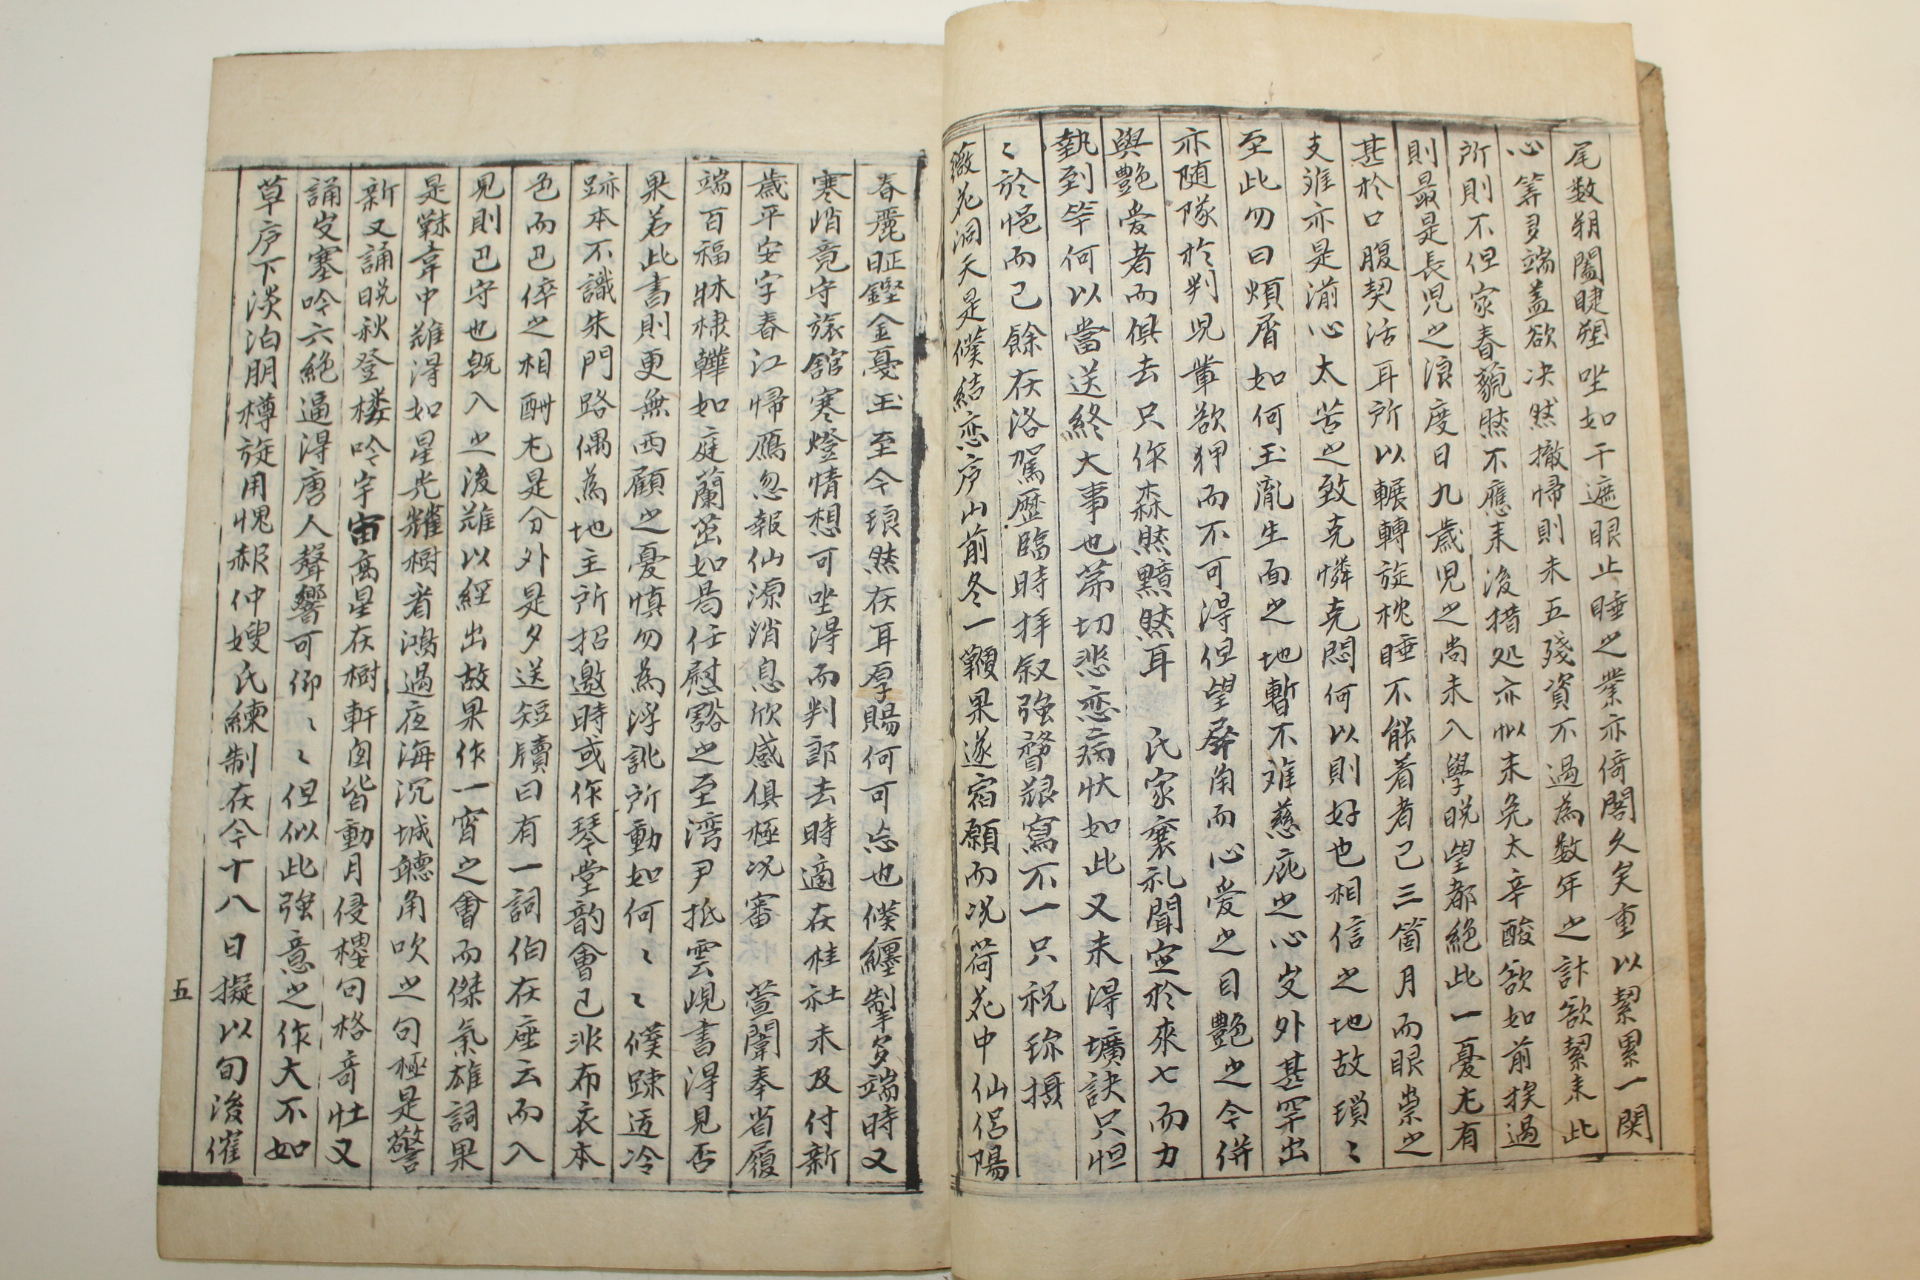 尾数朔闔睫塑坐如干遮眼止睡之業亦倚閣久矣重以絜累一関
心筭多端盖欲决然撤帰則未五殘資不過為数年之計欲絜未此
所則不但家春藐然不應来後措処亦似未免太辛酸欲如前挨過
則最是長児之浪度日九歲児之尚未入學晩望都絶此一憂尤有
甚於口腹契活耳所以輾轉旋枕睡不能着者已三箇月而眼祟之
支难亦是湔心太苦之致克憐克悶何以則好也相信之地故瑣〻
至此勿曰煩屑如何玉胤生面之地暫不难慈庇之心㕛外甚罕出
亦随隊於判児輩欲狎而不可得但望屏角而心爱之目艶之今併
與艶爱者而俱去只作森然黯然耳 氏家襄礼聞定於來七而力
執到竿何以當送終大事也茀切悲恋病状如此又未得壙訣只怛
〻於悒而已餘在洛駕歷臨時拝叙強瞀艱寫不一只祝珎摂
薇花洞天是僕結恋序山前冬一顆果遂宿願而况荷花中仙侶陽
春麗旺鏗金戛玉至今琅然在耳厚賜何可忘也僕纒掣多端時又
寒悄竟守旅舘寒燈情想可坐淂而判郎去時適在桂社未及付新
歲平安字春江帰鴈忽報仙源消息欣感俱極况審 萱闈奉省履
端百福牀棣韡如庭蘭茁如曷任慰豁之至湾尹抵雲峴書淂見否
果若此書則更無西顧之憂慎勿為浮訛所動如何〻〻僕踈迃冷
跡本不識朱門路偶為地主所招邀時或作琴堂韵會已非布衣本
色而已倅之相酬尤是分外是夕送短牘曰有一詞伯在座云而入
見則巴守也旣入之後难以經出故果作一宵之會而傑氣雄詞果
是韎韋中难淂如星光耀樹者鴻過夜海沉城聽角吹之句極是警
新又誦晩秋登楼吟宇宙高星在樹軒囪皆動月侵楼句格奇壮又
誦㕛塞吟六絶逼淂唐人聲響可仰〻〻但似此強意之作大不如
草序下淡泊朋樽旋用愧赧仲嫂氏練制在今十八日擬以旬後催
五